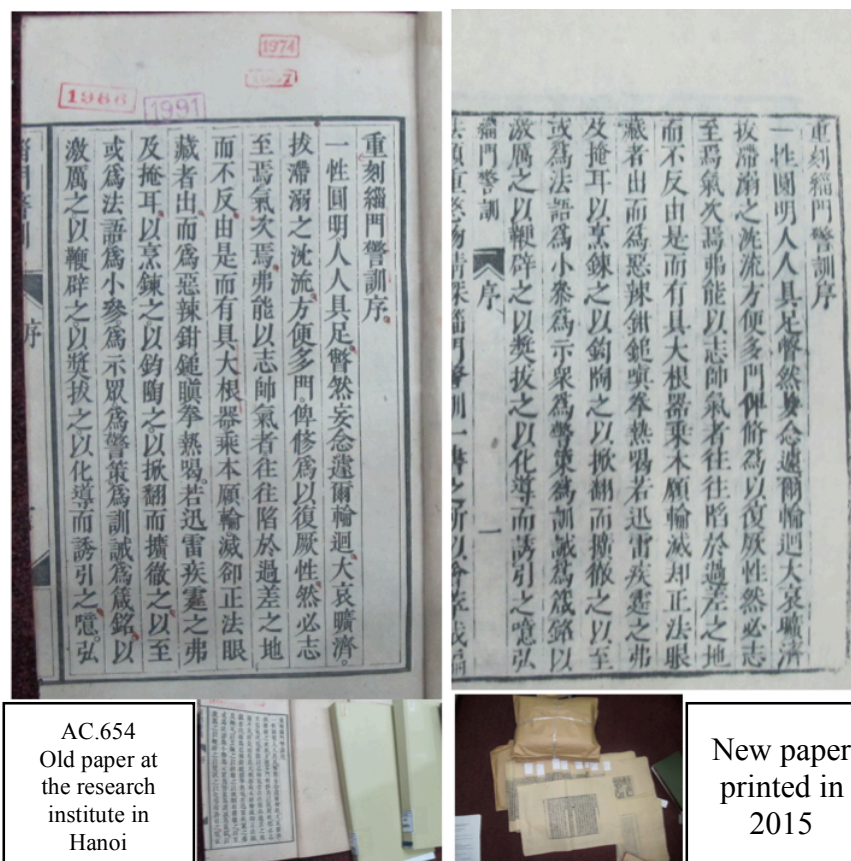 1974
1991
重刻緇門警訓序
一性圓明人人具足。瞥然妄念遽爾輪迴大哀曠濟。
拔滯溺之沈流。方便多門。俾修爲以復厥性。然必志
至焉氣次焉。弗能以志帥氣者往往陷於過差之地
而不反由是而有具大根器乘本願輪滅卻正法眼
藏者出。而爲惡辣鉗鎚瞋拳熱喝。若迅雷疾霆之弗
及掩耳。以烹鍊之。以鈞陶之。以掀翻而擴徹之。以至
或爲法語爲小參爲示眾爲警策爲訓誡爲箴銘。以
激厲之。以鞭辟之。以奬拔之。以化導而誘引之。噫。弘
門警訓
序
重刻緇門警訓序
一性圓明人人具足瞥然妄念遽爾輪迴大哀曠濟
拔滯溺之沈流方便多門俾脩爲以復厥性然必志
至焉氣次焉弗能以志帥氣者往往陷於過差之地
而不反由是而有具大根器乘本願輪滅却正法眼
藏者出而爲惡辣鉗鎚嗔拳熱喝若迅雷疾霆之弗
及掩耳以烹鍊之以鈞陶之以掀翻而擴徹之以至
或爲法語爲小參爲示眾爲警策爲訓誡爲箴銘以
激厲之以鞭辟之以奬拔之以化導而誘引之噫弘
緇門警訓
序
一
AC.654
Old paper at
the research
institute in
Hanoi
New paper
printed in
2015